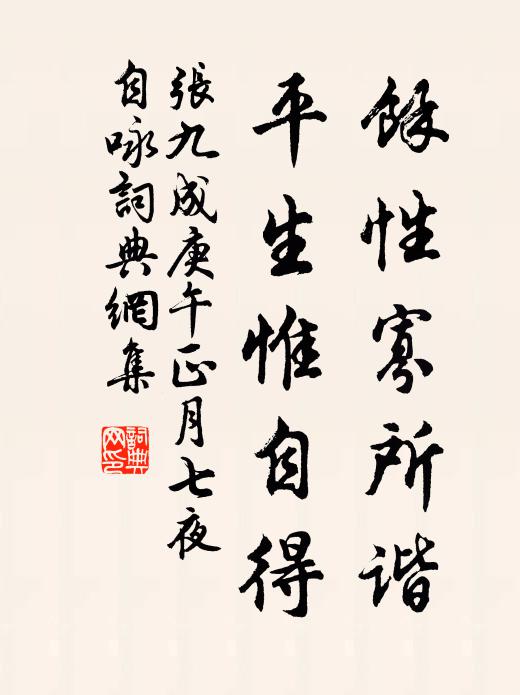 餘性寡所諧
平生惟自得
張九成庚午正月七夜
自咏詞典網集
詞典
网印